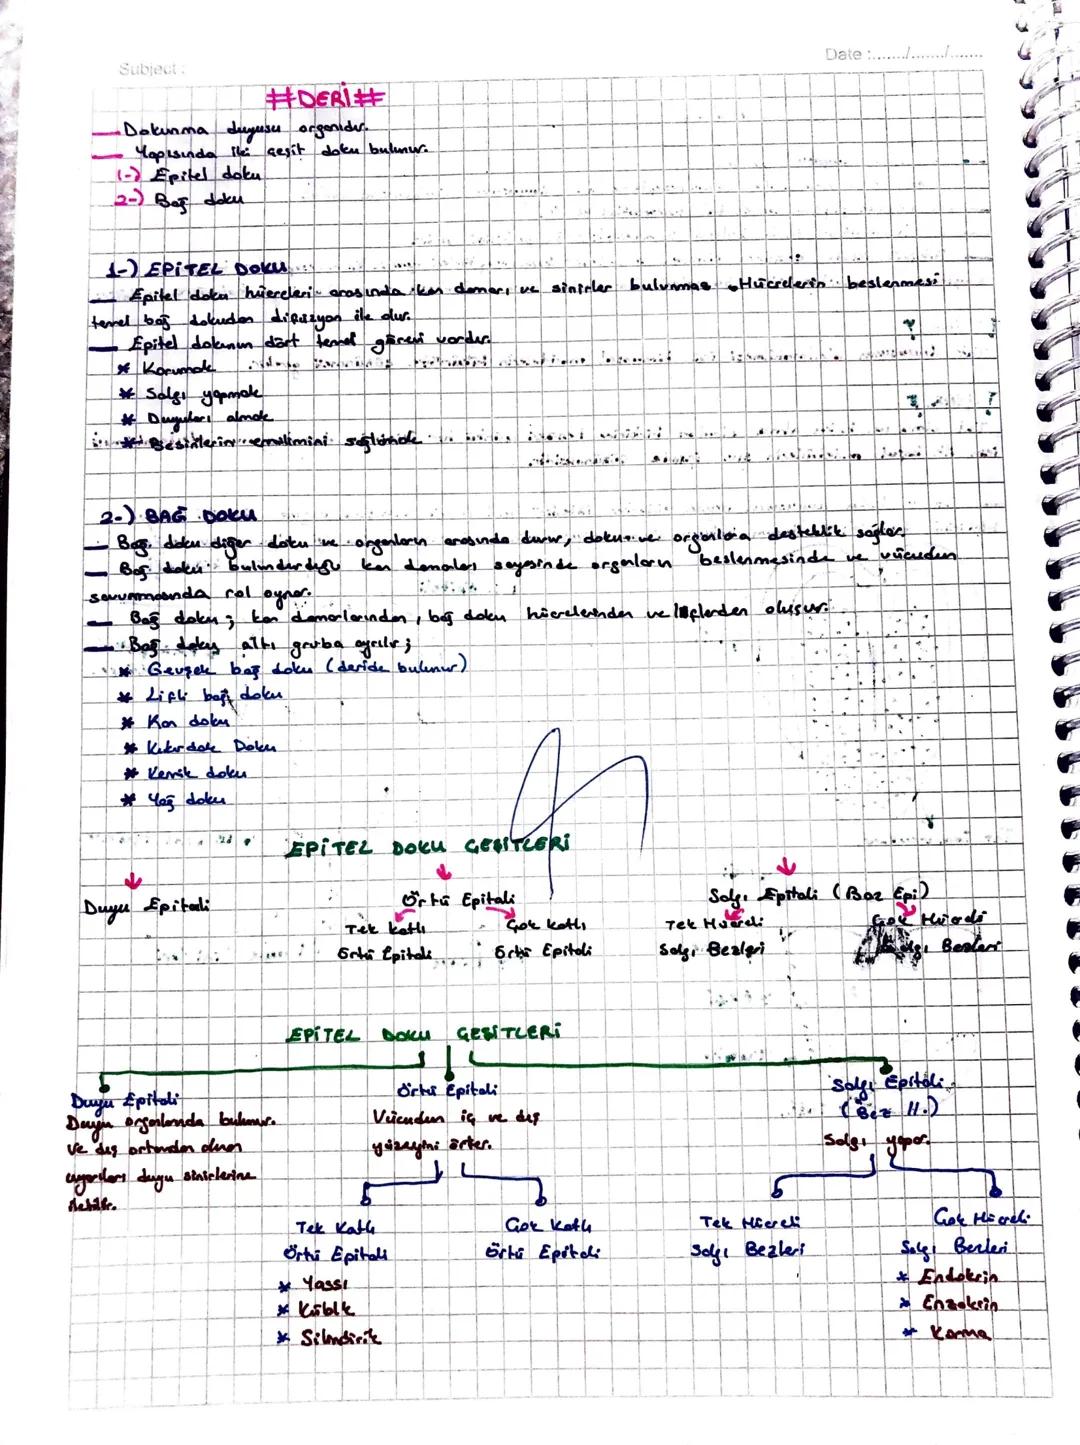 Subject:
Date :......../......../........
#DERİ#
— Dokunma duyusu organıdır.
— Yapısında iki çeşit doku bulunur.
1-) Epitel doku
2-) Bağ doku
1-) EPİTEL DOKU
— Epitel doku hücreleri arasında kan damarı ve sinirler bulunmaz. Hücrelerin beslenmesi
temel bağ dokudan difüzyon ile olur.
— Epitel dokunun dört temel görevi vardır.
* Korumak
* Salgı yapmak
* Duyuları almak
* Besinlerin emilimini sağlamak
2-) BAĞ DOKU
— Bağ doku diğer doku ve organların arasında durur, doku ve organlara desteklik sağlar.
— Bağ doku bulundurduğu kan damarları sayesinde organların beslenmesinde ve vücudun
savunmasında rol oynar.
— Bağ doku; kan damarlarından, bağ doku hücrelerinden ve liflerden oluşur.
— Bağ doku altı gruba ayrılır;
* Gevşek bağ doku (deride bulunur)
* Lifli bağ doku
* Kan doku
* Kıkırdak Doku
* Kemik doku
* Yağ doku
EPİTEL DOKU ÇEŞİTLERİ
Duyu Epitali
Örtü Epitali
Salgı Epitali (Baz Epi)
Tek katlı
Örtü Epitali
Çok katlı
Örtü Epitali
Tek Hücreli
Salgı Bezleri
Çok Hücreli
Salgı Bezleri
EPİTEL DOKU ÇEŞİTLERİ
Duyu Epitali
Duyu organlarında bulunur.
Ve dış ortamdan alınan
uyarıları duyu sinirlerine
iletilir.
Örtü Epitali
Vücudun iç ve dış
yüzeyini örter.
Salgı Epitali
(Bez 11.)
Salgı yapar.
Tek Katlı
Örtü Epitali
* Yassı
* Kübik
* Silindirik
Çok Katlı
Örtü Epitali
Tek Hücreli
Salgı Bezleri
Çok Hücreli
Salgı Bezleri
* Endokrin
* Enzokrin
* Karma